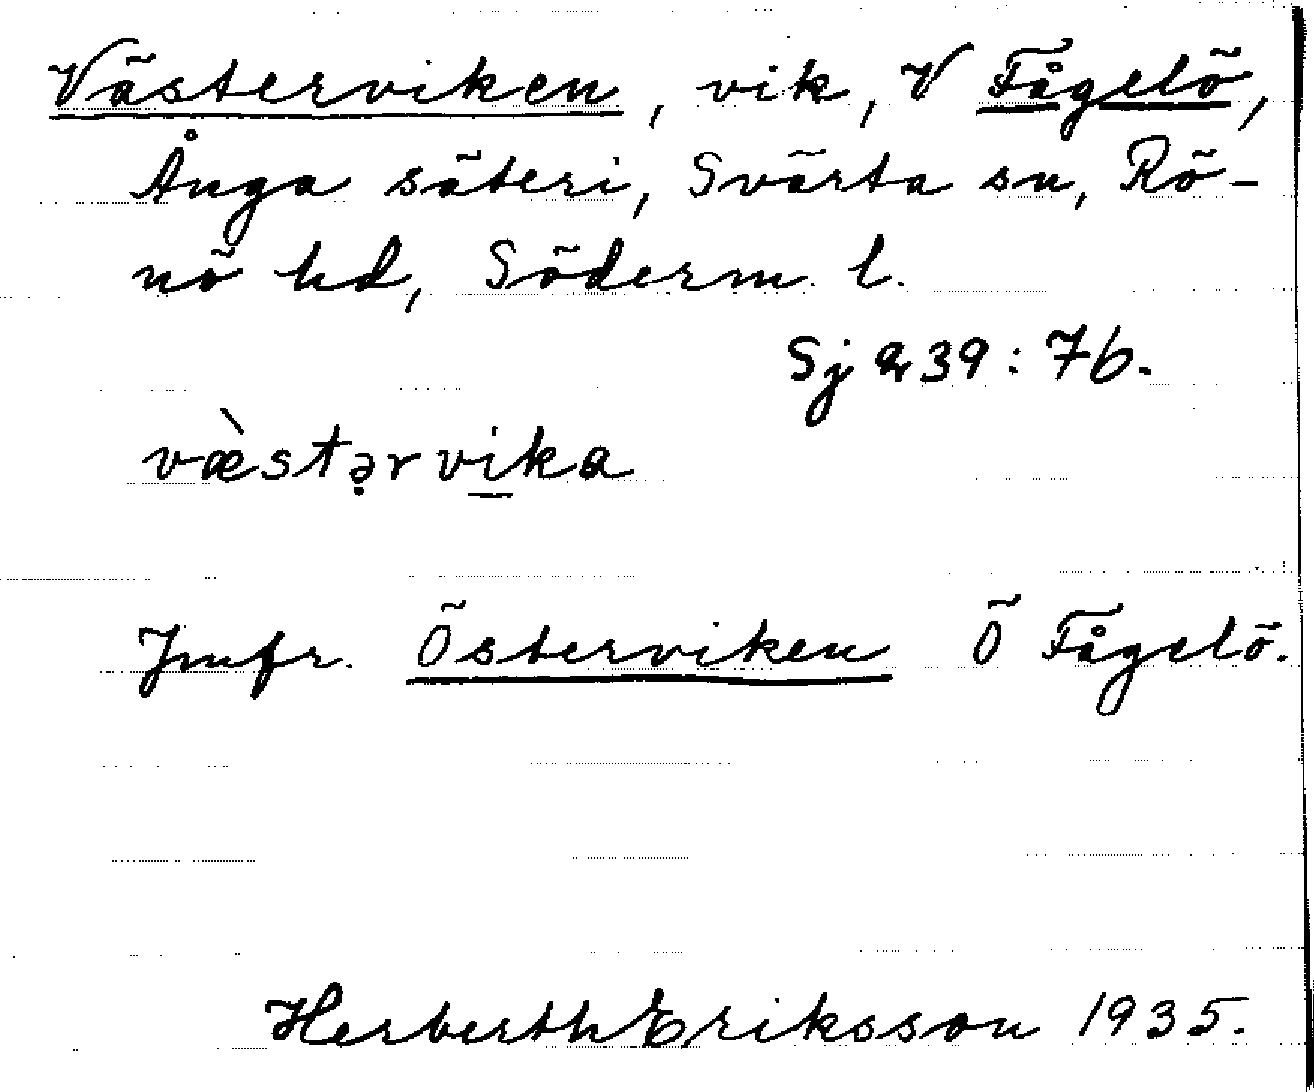 Västerviken, vik, V Fågelö,
Ånga säteri, Svärta sn, Rö-
nö hd, Söderm. l.
Sj 939:76.
væ̀stə̣rvi̠ka
Jmfr. Österviken Ö Fågelö.
Herberth Eriksson 1935.